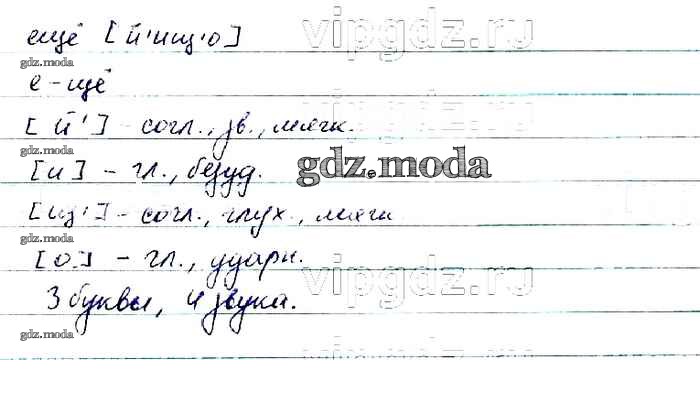 ещё [й'ищ'о]
vipgdz.ru
gdz.moda
е-щё
vipgdz.ru
[й'] - согл., зв., мягк.
gdz.moda
[и] - гл., безуд.
gdz.moda
[щ'] - согл., глух., мягк
gdz.moda
[о] - гл., ударн.
vipgdz.ru
3 буквы, 4 звука.
gdz.moda
vipgdz.ru